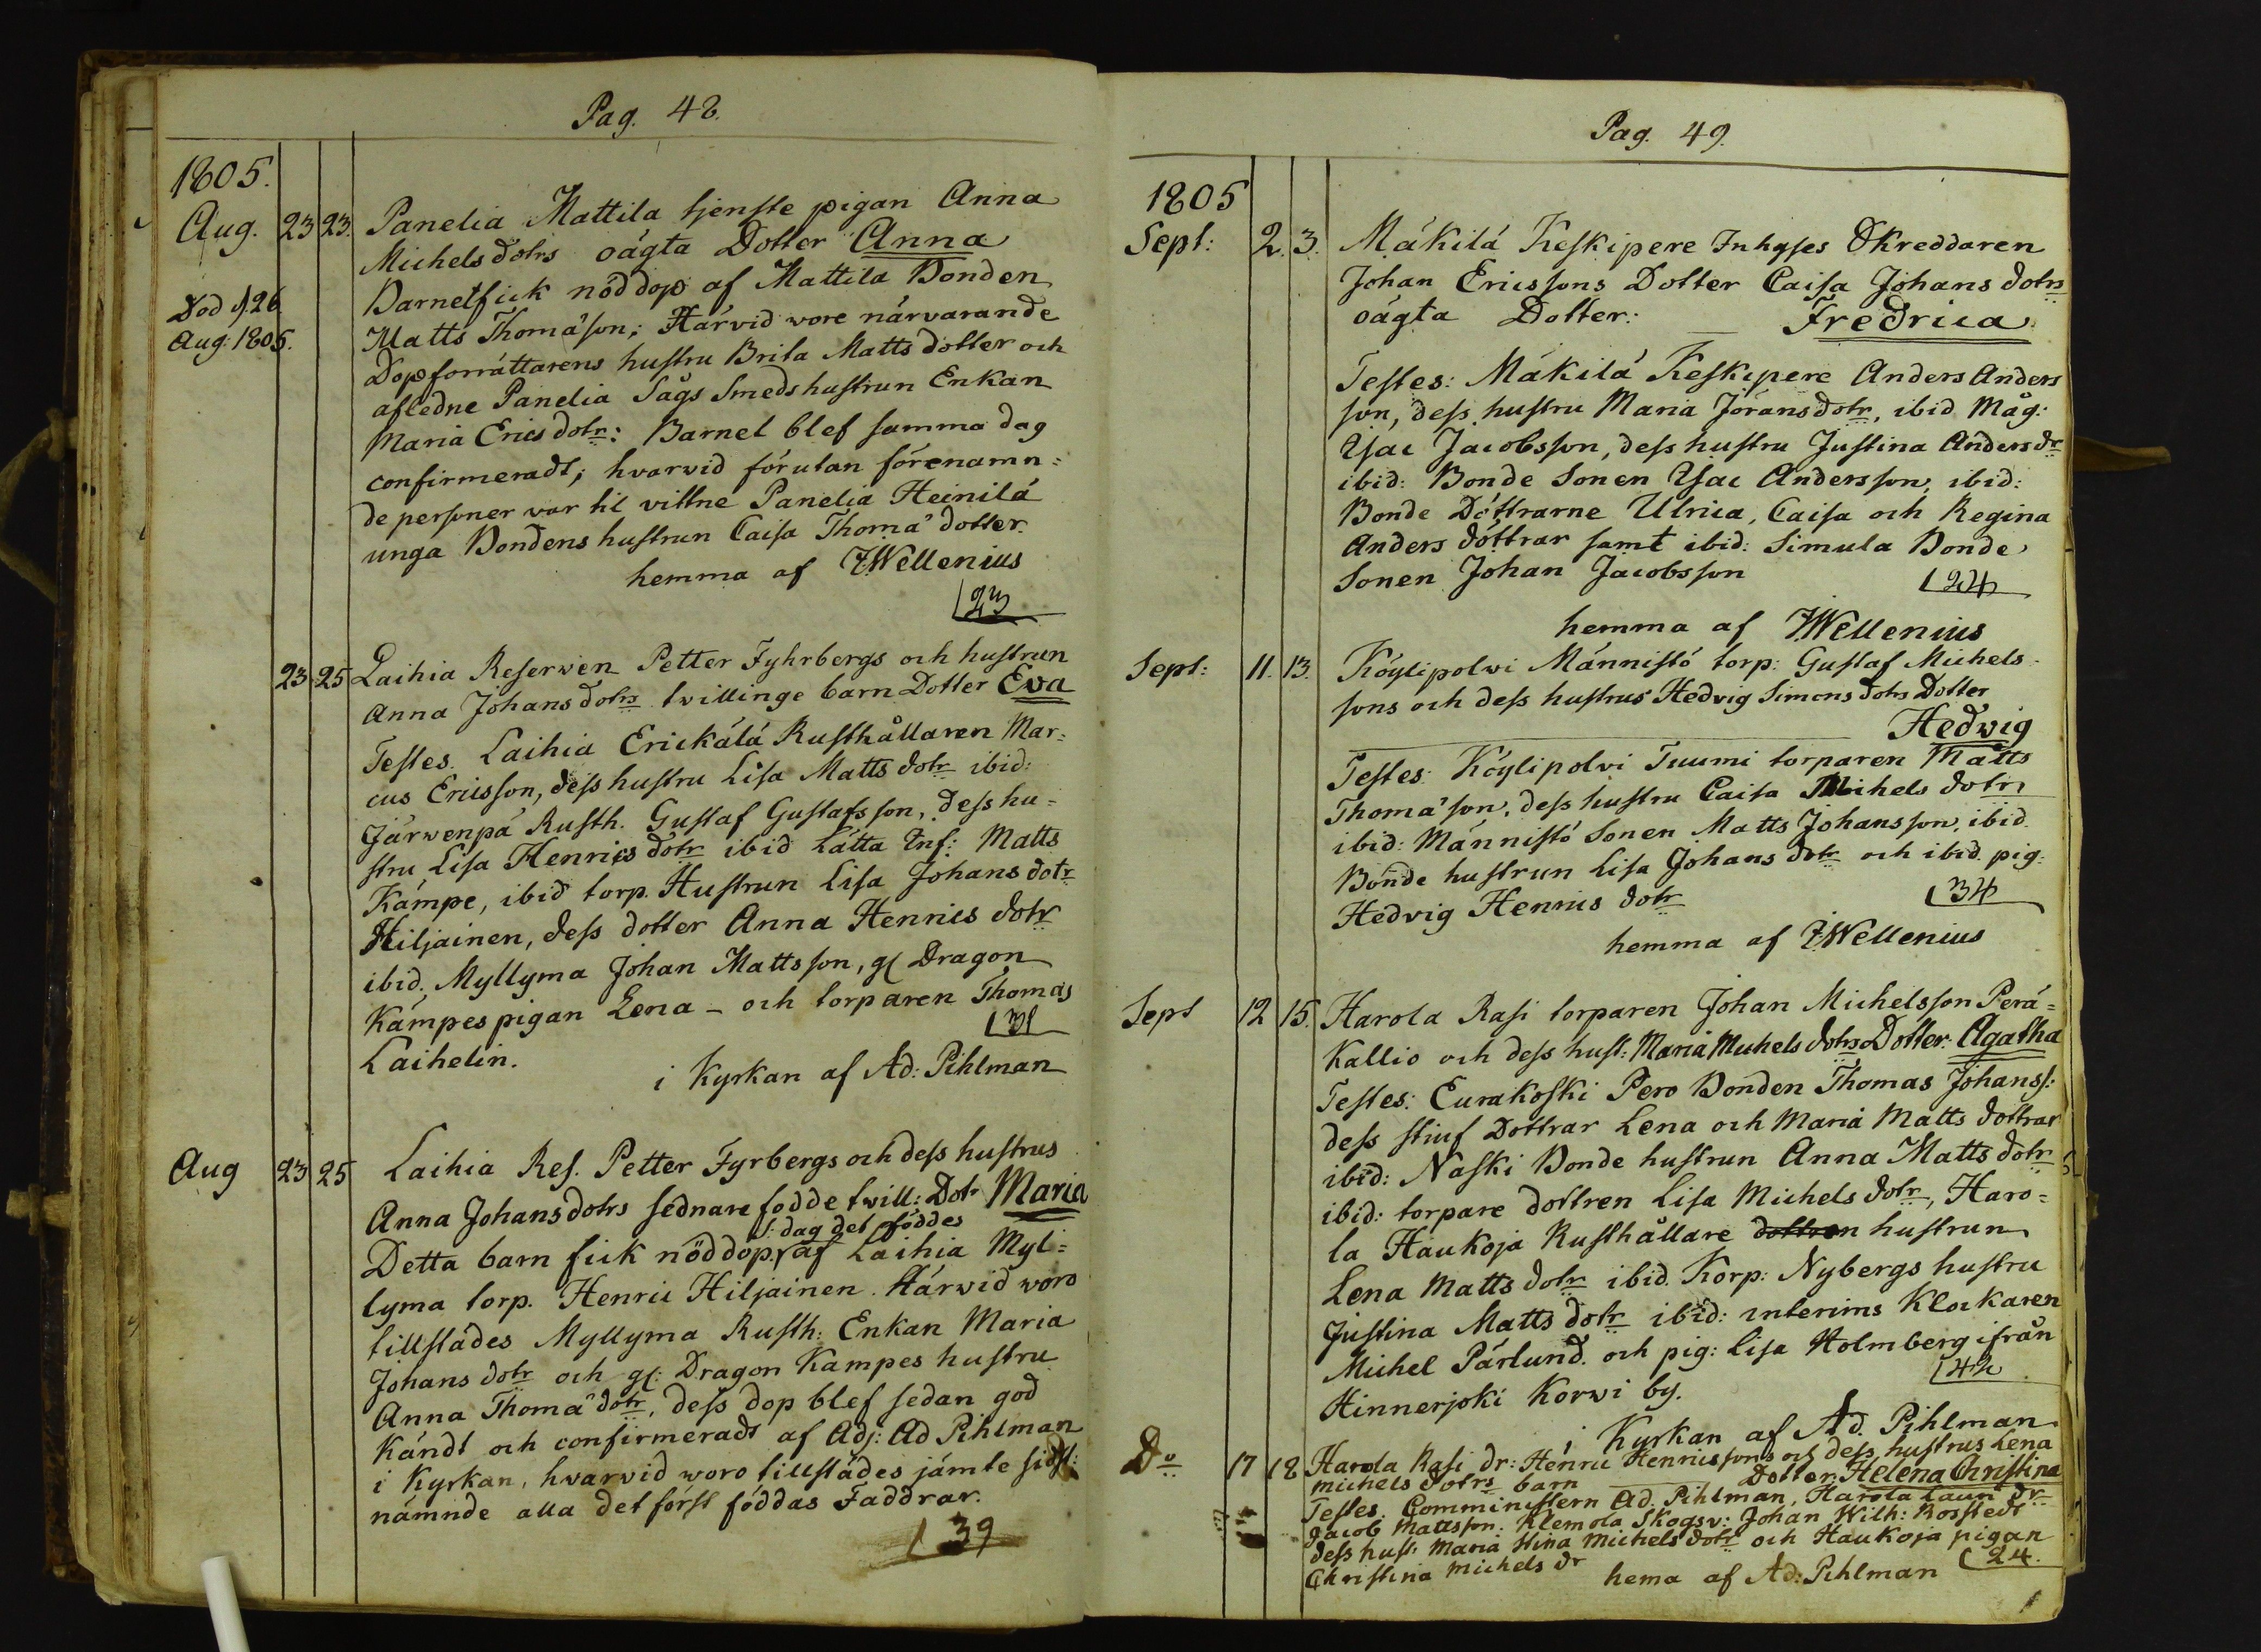 Pag. 48.
1805.
Aug. 23 23. Panelia Mattila tjenste pigan Anna
Michelsdotrs oägta Dotter Anna
Barnet fick nöddop af Mattila Bonden
Död d. 26 Aug: 1805.
Matts Thomä'son; Härvid wore närvarande
Dopförrättarens hustru Brita Matts dotter och
afledne Panelia Sågs Smeds hustrun Enkan
Maria Ericsdotr: Barnet blef samma dag
confirmeradt; hvarvid förutan förenamn=
de personer var til vittne Panelia Heinilä
unga Bondens hustrun Caisa Thomä' dotter.
hemma af JWellenius
23
23 25 Laihia Reserwen Petter Fyhrbergs och hustrun
Anna Johansdotrs twillinge barn Dotter Eva
Testes. Laihia Erickälä Rusthållaren Mar=
cus Ericsson, dess hustru Lisa Matts dotr ibid:
Järwenpä Rusth. Gustaf Gustafsson, dess hu=
stru Lisa Henrics dotr ibid Lätta Inf: Matts
Kämpe, ibid torp. Hustrun Lisa Johans dotr
Hiljainen, dess dotter Anna Henrics dotr
ibid. Myllyma Johan Mattsson, gl Dragon
Kämpes pigan Lena - och torparen Thomas
Laihelin.
31
i Kyrkan af Ad: Pihlman
Aug 23 25 Laihia Res. Petter Fyrbergs och dess hustrus
Anna Johansdotrs sednare födde twill: Dotr Maria
s: dag det föddes
Detta barn fick nöddop af Laihia Myl=
lyma torp. Henric Hiljainen. Härwid woro
tillstädes Myllyma Rusth: Enkan Maria
Johans dotr och gl: Dragon Kampes hustru
Anna Thomä dotr, dess dop blef sedan god
kändt och confirmeradt af Adj: Ad Pihlman
i Kyrkan, hvarvid woro tillstädes jämte sidst:
nämnde alla det först föddas Faddrar.
39
Pag. 49.
1805
Sept: 2. 3. Mäkilä Keskipere Inhyses Skreddaren
Johan Ericssons Dotter Caisa Johans dotrs
oägta Dotter: Fredrica
Testes: Mäkilä Keskipere Anders Anders
son, dess hustru Maria Jöransdotr, ibid Måg:
Isac Jacobsson, dess hustru Justina Anders dr
ibid: Bonde Sonen Isac Andersson, ibid:
Bonde Döttrarne Ulrica, Caisa och Regina
Anders döttrar samt ibid: Simula Bonde
Sonen Johan Jacobsson
24
hemma af JWellenius
Sept: 11. 13. Köylipolwi Männistö torp: Gustaf Michels
sons och dess hustrus Hedvig Simons dotrs Dotter
Hedwig
Testes: Köylipolvi Tuumi torparen Matts
Thomä'son, dess hustru Caisa Mihels dotr,
ibid: Männistö Sonen Matts Johansson, ibid.
Bonde hustrun Lisa Johans dotr och ibid. pig:
Hedvig Henrics dotr
34
hemma af JWellenius
Sept 12 15. Harola Rasi torparen Johan Michelsson Perä=
Kallio och dess hust: Maria Michels dotrs Dotter: Agatha
Testes: Eurakoski Pero Bonden Thomas Johanss:
dess stiuf Dottrar Lena och Maria Matts dottrar
ibid: Naski Bonde hustrun Anna Matts dotr
ibid: torpare dottren Lisa Michels dotr, Haro=
la Haukoja Rusthållare dottren hustrun
Lena Matts dotr ibid. Korp: Nybergs hustru
Justina Matts dotr ibid: interims Klockaren
Michel Pärlund. och pig: Lisa Holmberg ifrån
Hinnerjoki Korwi by.
42
i Kyrkan af Ad. Pihlman
Do 17 18 Harola Rasi dr: Henric Henricssons och dess hustrus Lena
Michels dotrs barn Dotter Helena Christina
Testes. Comministern Ad. Pihlman, Harola Lauri dr
Jacob Mattsson: Klemola Skogsv: Johan Wilh: Rosstedt
dess hust: Maria Stina Michels dotr och Haukoja pigan
Christina Michels dr
24.
hema af Ad: Pihlman